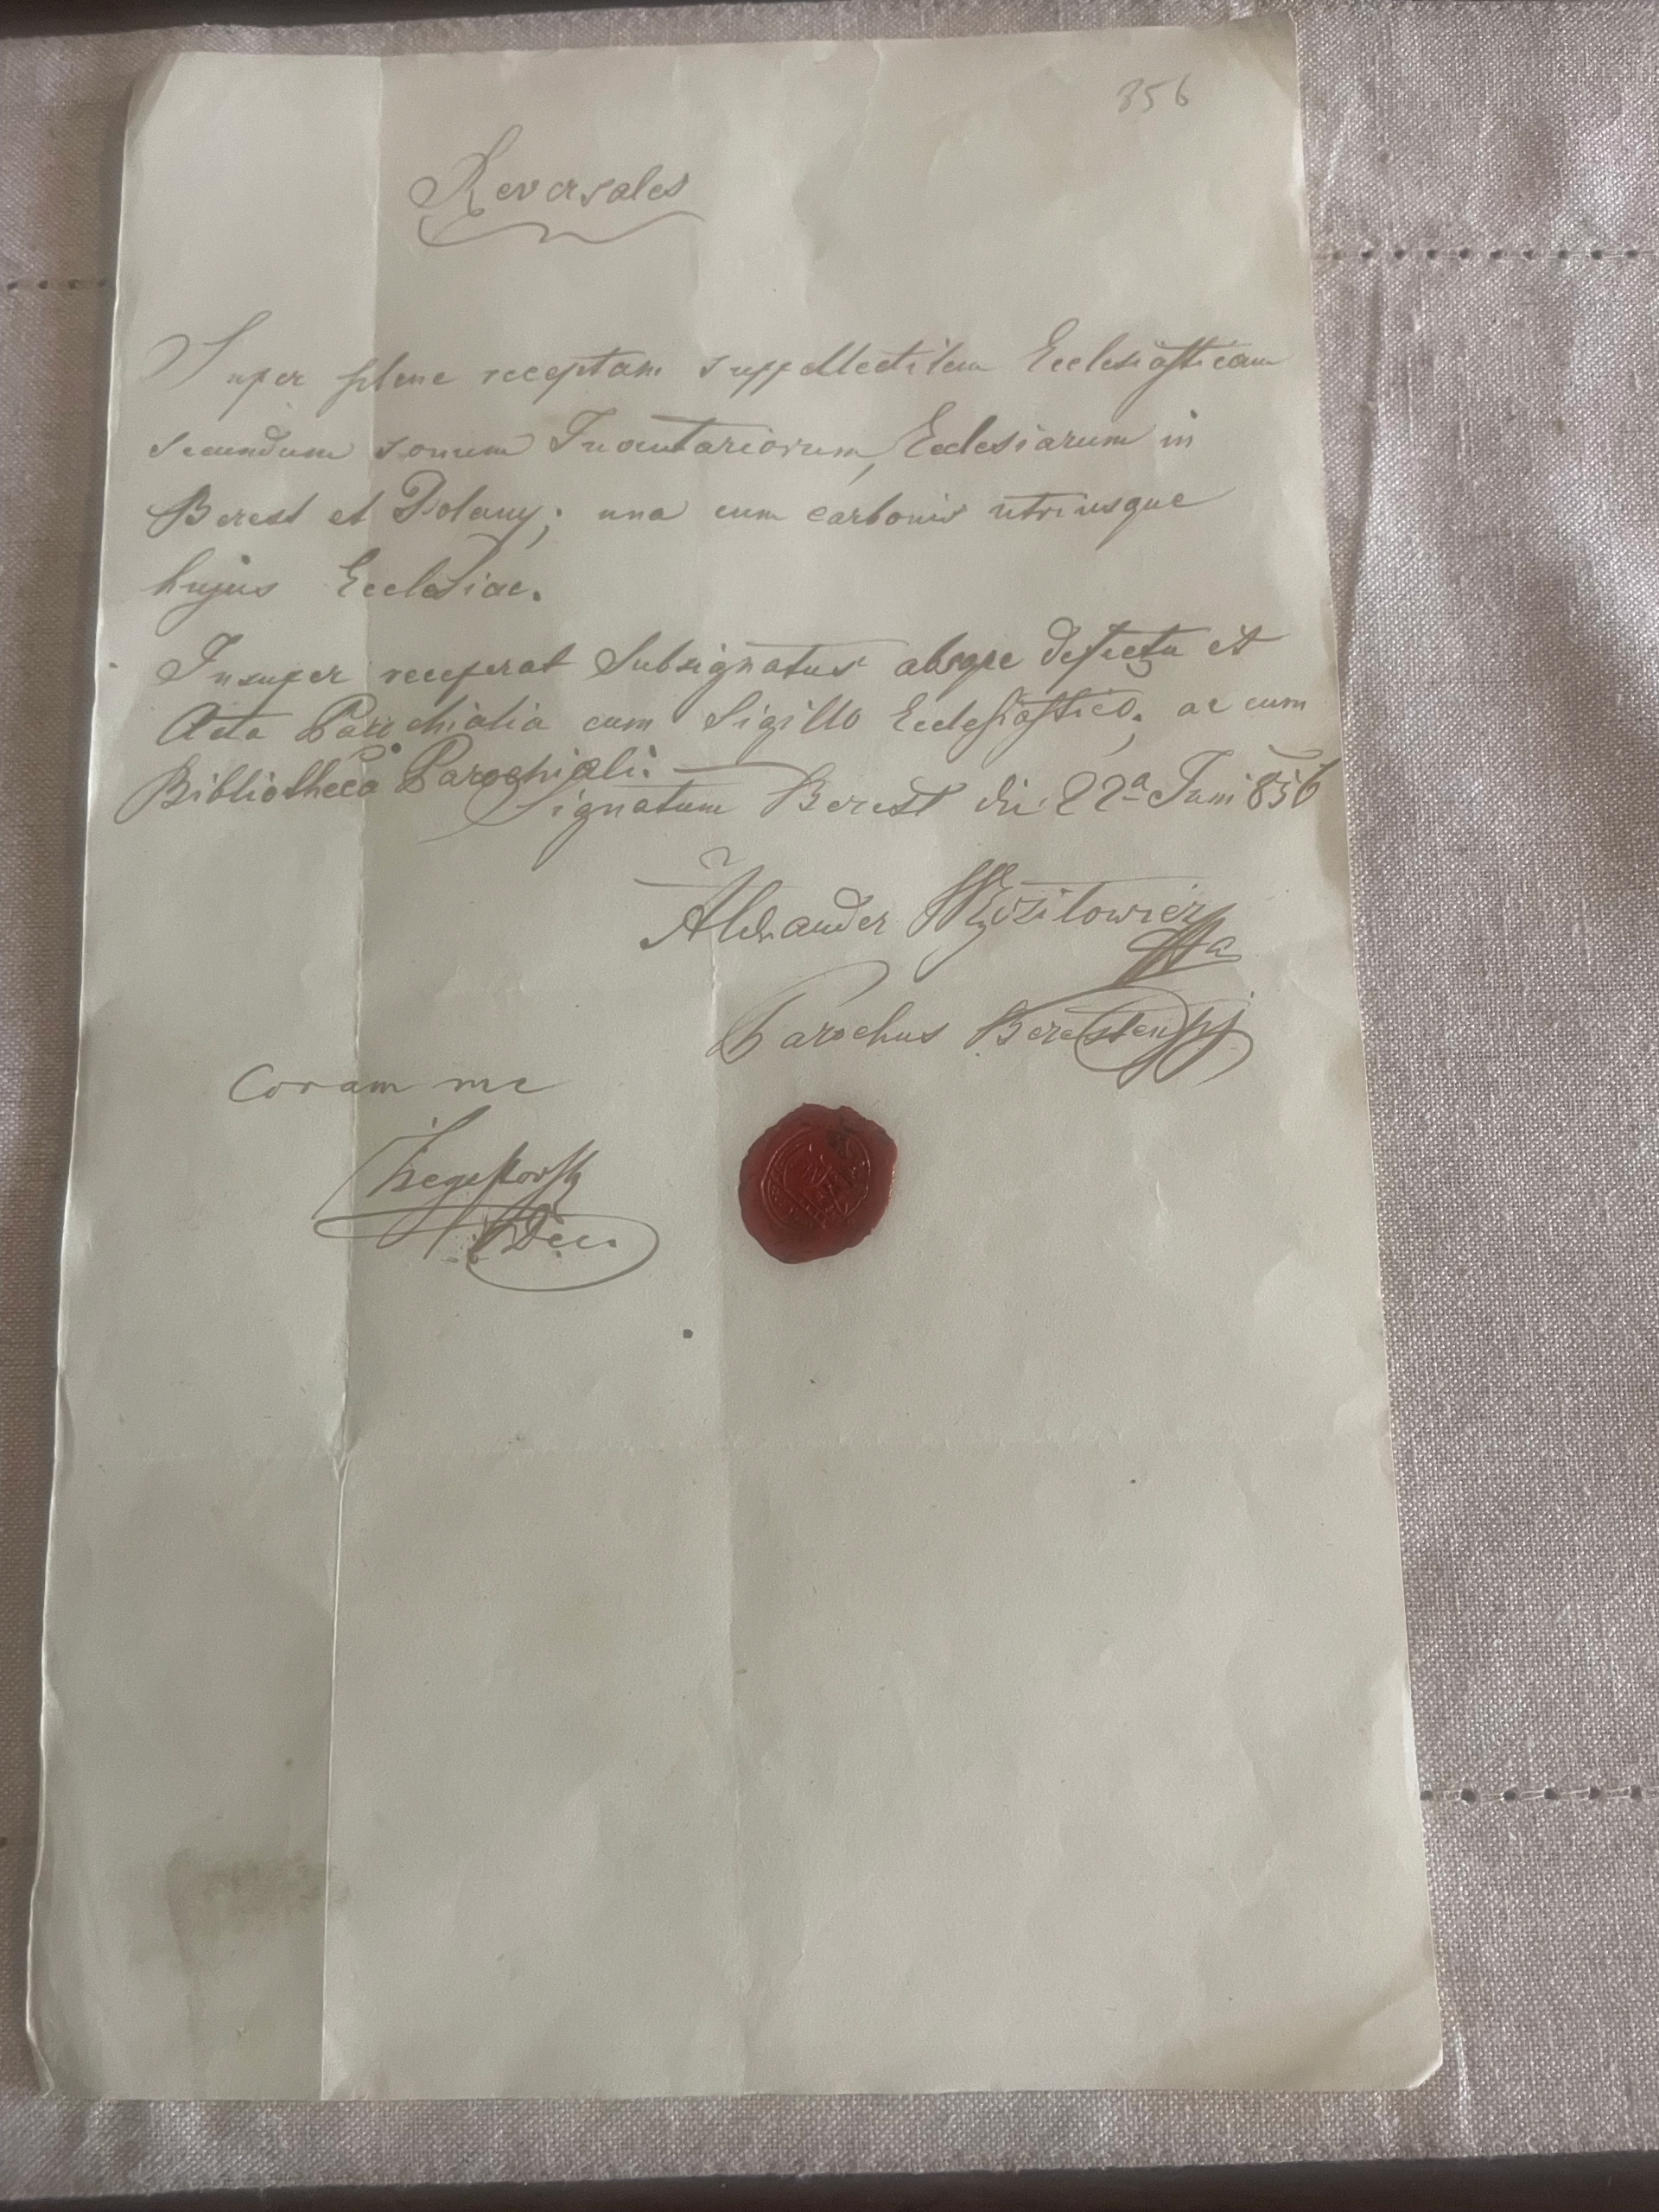 856
Reversales
Super plene receptam suppellectilem Ecclesiasticam
secundum sonum Inventariorum, Ecclesiarum in
Berest et Polany; una cum carbonis utriusque
hujus Ecclesiae.
Insuper receperat Subsignatus absque defectu et
Acta Parochialia cum Sigillo Ecclesiastico, ac cum
Bibliotheca Parochiali.
Signatum Berest die 22a Juni 856
Alexander
Parochus Berestensis
Coram me
Dec.